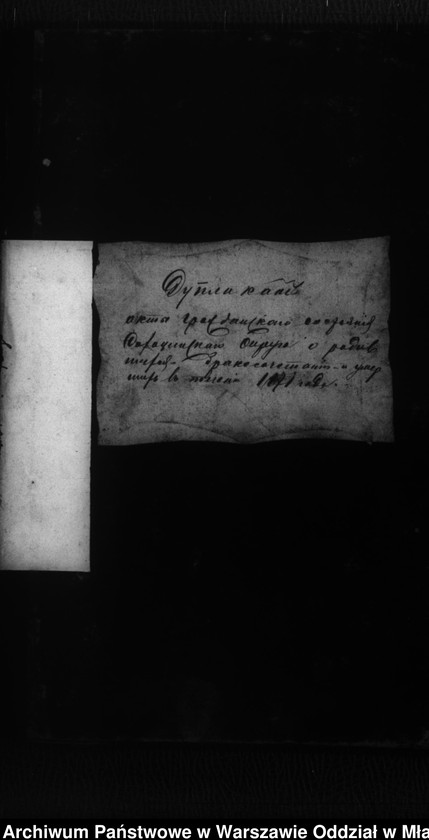 Дупликатъ
акта Гражданскаго состоянія
Округа о родив
шихся бракосочетавш и умер
шихъ в теченіи 1871 года.
Archiwum Państwowe w Warszawie Oddział w Mła